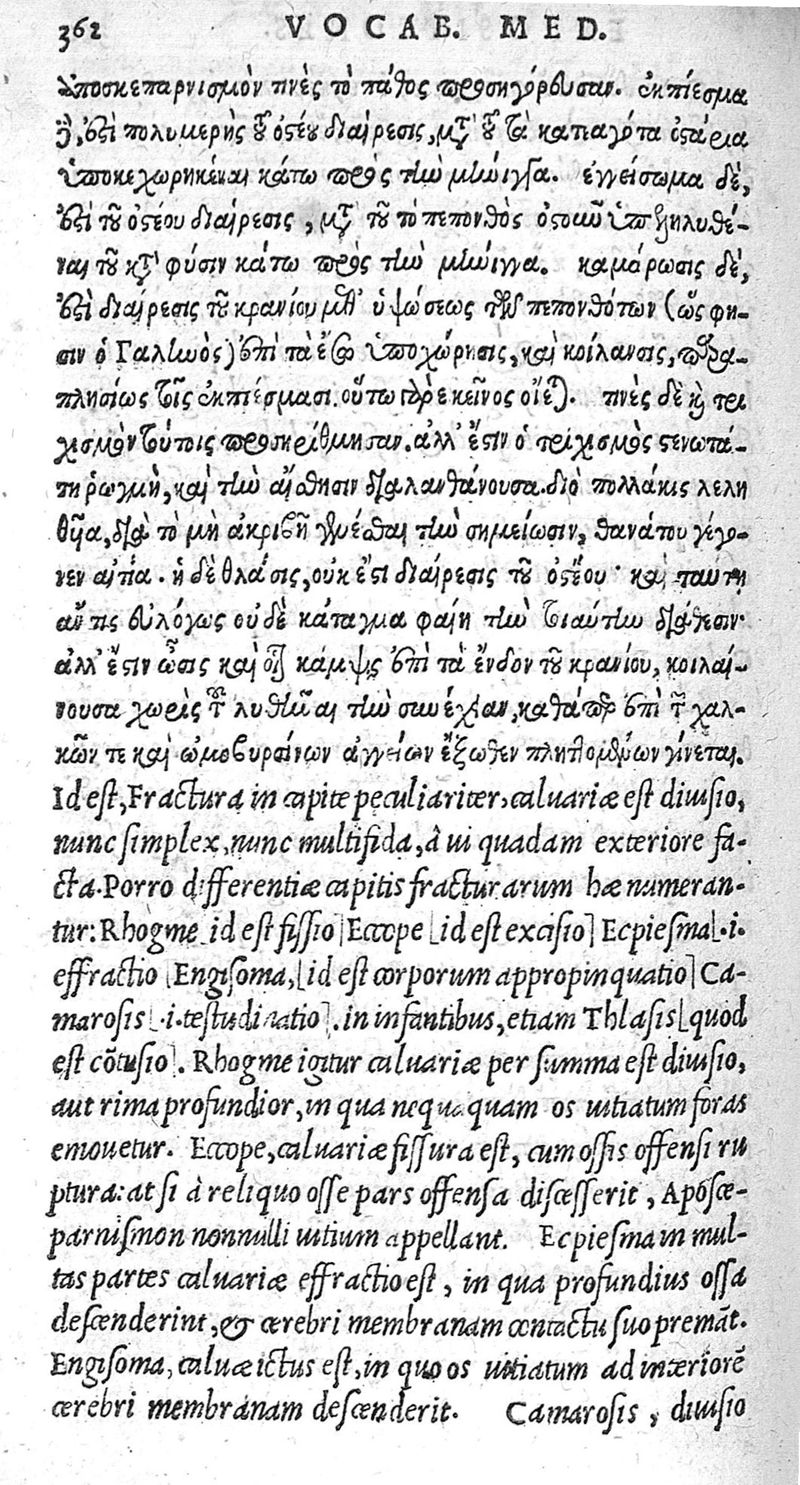 362 VOCAB. MED.
ἀποσκεπαρνισμὸν τινὲς τὸ πάθος προσηγόρευσαν. ἐκπίεσμα
δὲ, ἐστὶ πολυμερὴς τοῦ ὀστέου διαίρεσις, μετὰ τοῦ τὰ κατιαγότα ὀστάρια
ὑποκεχωρηκέναι κάτω πρὸς τὴν μήνιγγα. ἐγγείσωμα δὲ,
ἐστὶ τοῦ ὀστέου διαίρεσις, μετὰ τοῦ τὸ πεπονθὸς ὀστοῦν ὑπεξεληλυθέ-
ναι τοῦ κατὰ φύσιν κάτω πρὸς τὴν μήνιγγα. καμάρωσις δὲ,
ἐστὶ διαίρεσις τοῦ κρανίου μεθ' ὑψώσεως τῶν πεπονθότων (ὥς φη-
σιν ὁ Γαληνὸς) ἐπὶ τὰ ἔξω ὑποχώρησις, καὶ κοίλανσις, παρα-
πλησίως τοῖς ἐκπιέσμασι. οὕτω γὰρ ἐκεῖνος οἴεται. τινὲς δὲ καὶ τρι
χισμὸν τούτοις προσηρίθμησαν. ἀλλ' ἔστιν ὁ τριχισμὸς στενωτά-
τη ῥωγμὴ, καὶ τὴν αἴσθησιν διαλανθάνουσα. διὸ πολλάκις λελη
θῦα, διὰ τὸ μὴ ἀκριβῆ γενέσθαι τὴν σημείωσιν, θανάτου γέγο-
νεν αἰτία. ἡ δὲ θλάσις, οὐκ ἔστι διαίρεσις τοῦ ὀστέου· καὶ ταύτῃ
αὖ τις εὐλόγως οὐδὲ κάταγμα φαίη τὴν τοιαύτην διάθεσιν·
ἀλλ' ἔστιν ὦσις καὶ οἷον κάμψις ἐπὶ τὰ ἔνδον τοῦ κρανίου, κοιλαί-
νουσα χωρὶς τοῦ λυθῆναι τὴν συνέχειαν, καθάπερ ἐπὶ τῶν χαλ-
κῶν τε καὶ ὠμοβυρσίνων ἀγγείων ἔξωθεν πληττομένων γίνεται.
Id est, Fractura in capite peculiariter, caluariæ est diuisio,
nunc simplex, nunc multifida, à ui quadam exteriore fa-
cta. Porro differentiæ capitis fracturarum hæ numeran-
tur: Rhogme id est fissio] Eccope [id est excisio] Ecpiesma[.i.
effractio [Engisoma,[id est corporum appropinquatio] Ca-
marosis [.i. testudinatio]. in infantibus, etiam Thlasis[quod
est cõtusio]. Rhogme igitur caluariæ per summa est diuisio,
aut rima profundior, in qua nequaquam os uitiatum foras
emouetur. Eccope, caluariæ fissura est, cum ossis offensi ru
ptura: at si à reliquo osse pars offensa discesserit, Aposce-
parnismon nonnulli uitium appellant. Ecpiesma in mul-
tas partes caluariæ effractio est, in qua profundius ossa
descenderint, & cerebri membranam contactu suo premãt.
Engisoma, caluæ ictus est, in quo os uitiatum ad interiorẽ
cerebri membranam descenderit. Camarosis, diuisio